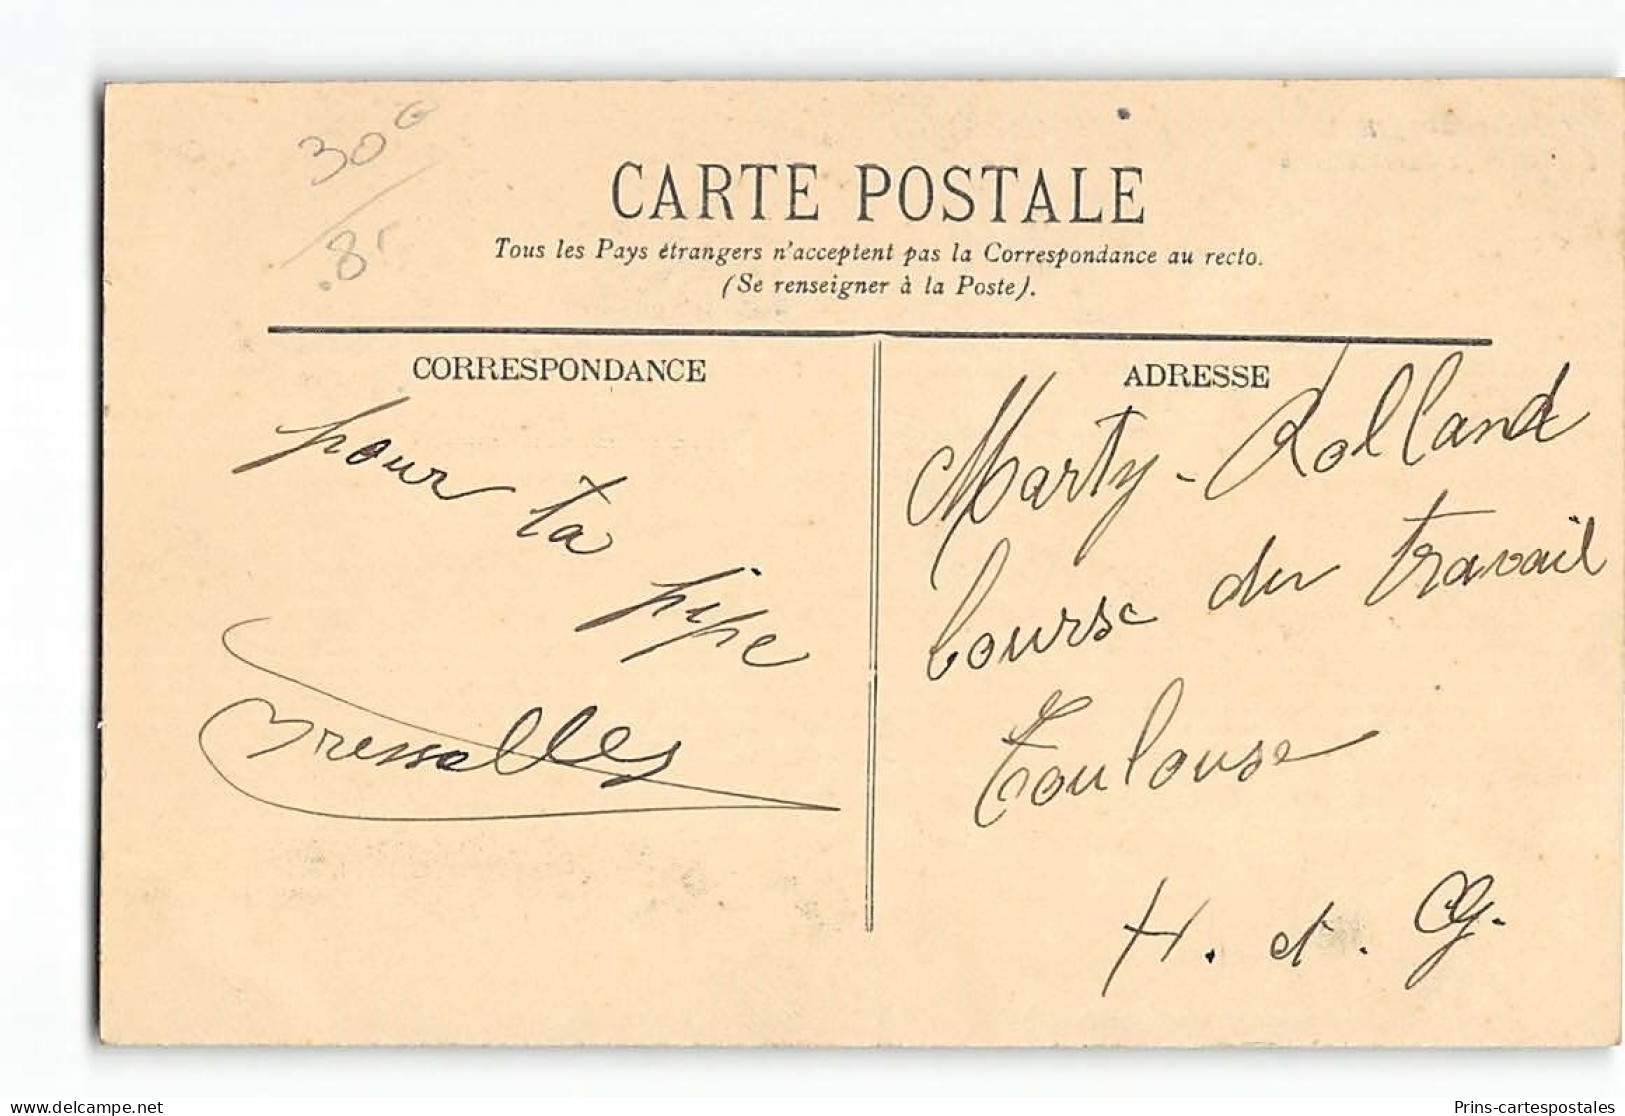 30
8
CARTE POSTALE
Tous les Pays étrangers n'acceptent pas la Correspondance au recto.
(Se renseigner à la Poste).
CORRESPONDANCE
pour ta
pipe
ADRESSE
Marty-Rolland
bourse du travail
Toulouse
H. et. G.
www.delcampe.net
Prins-cartespostales